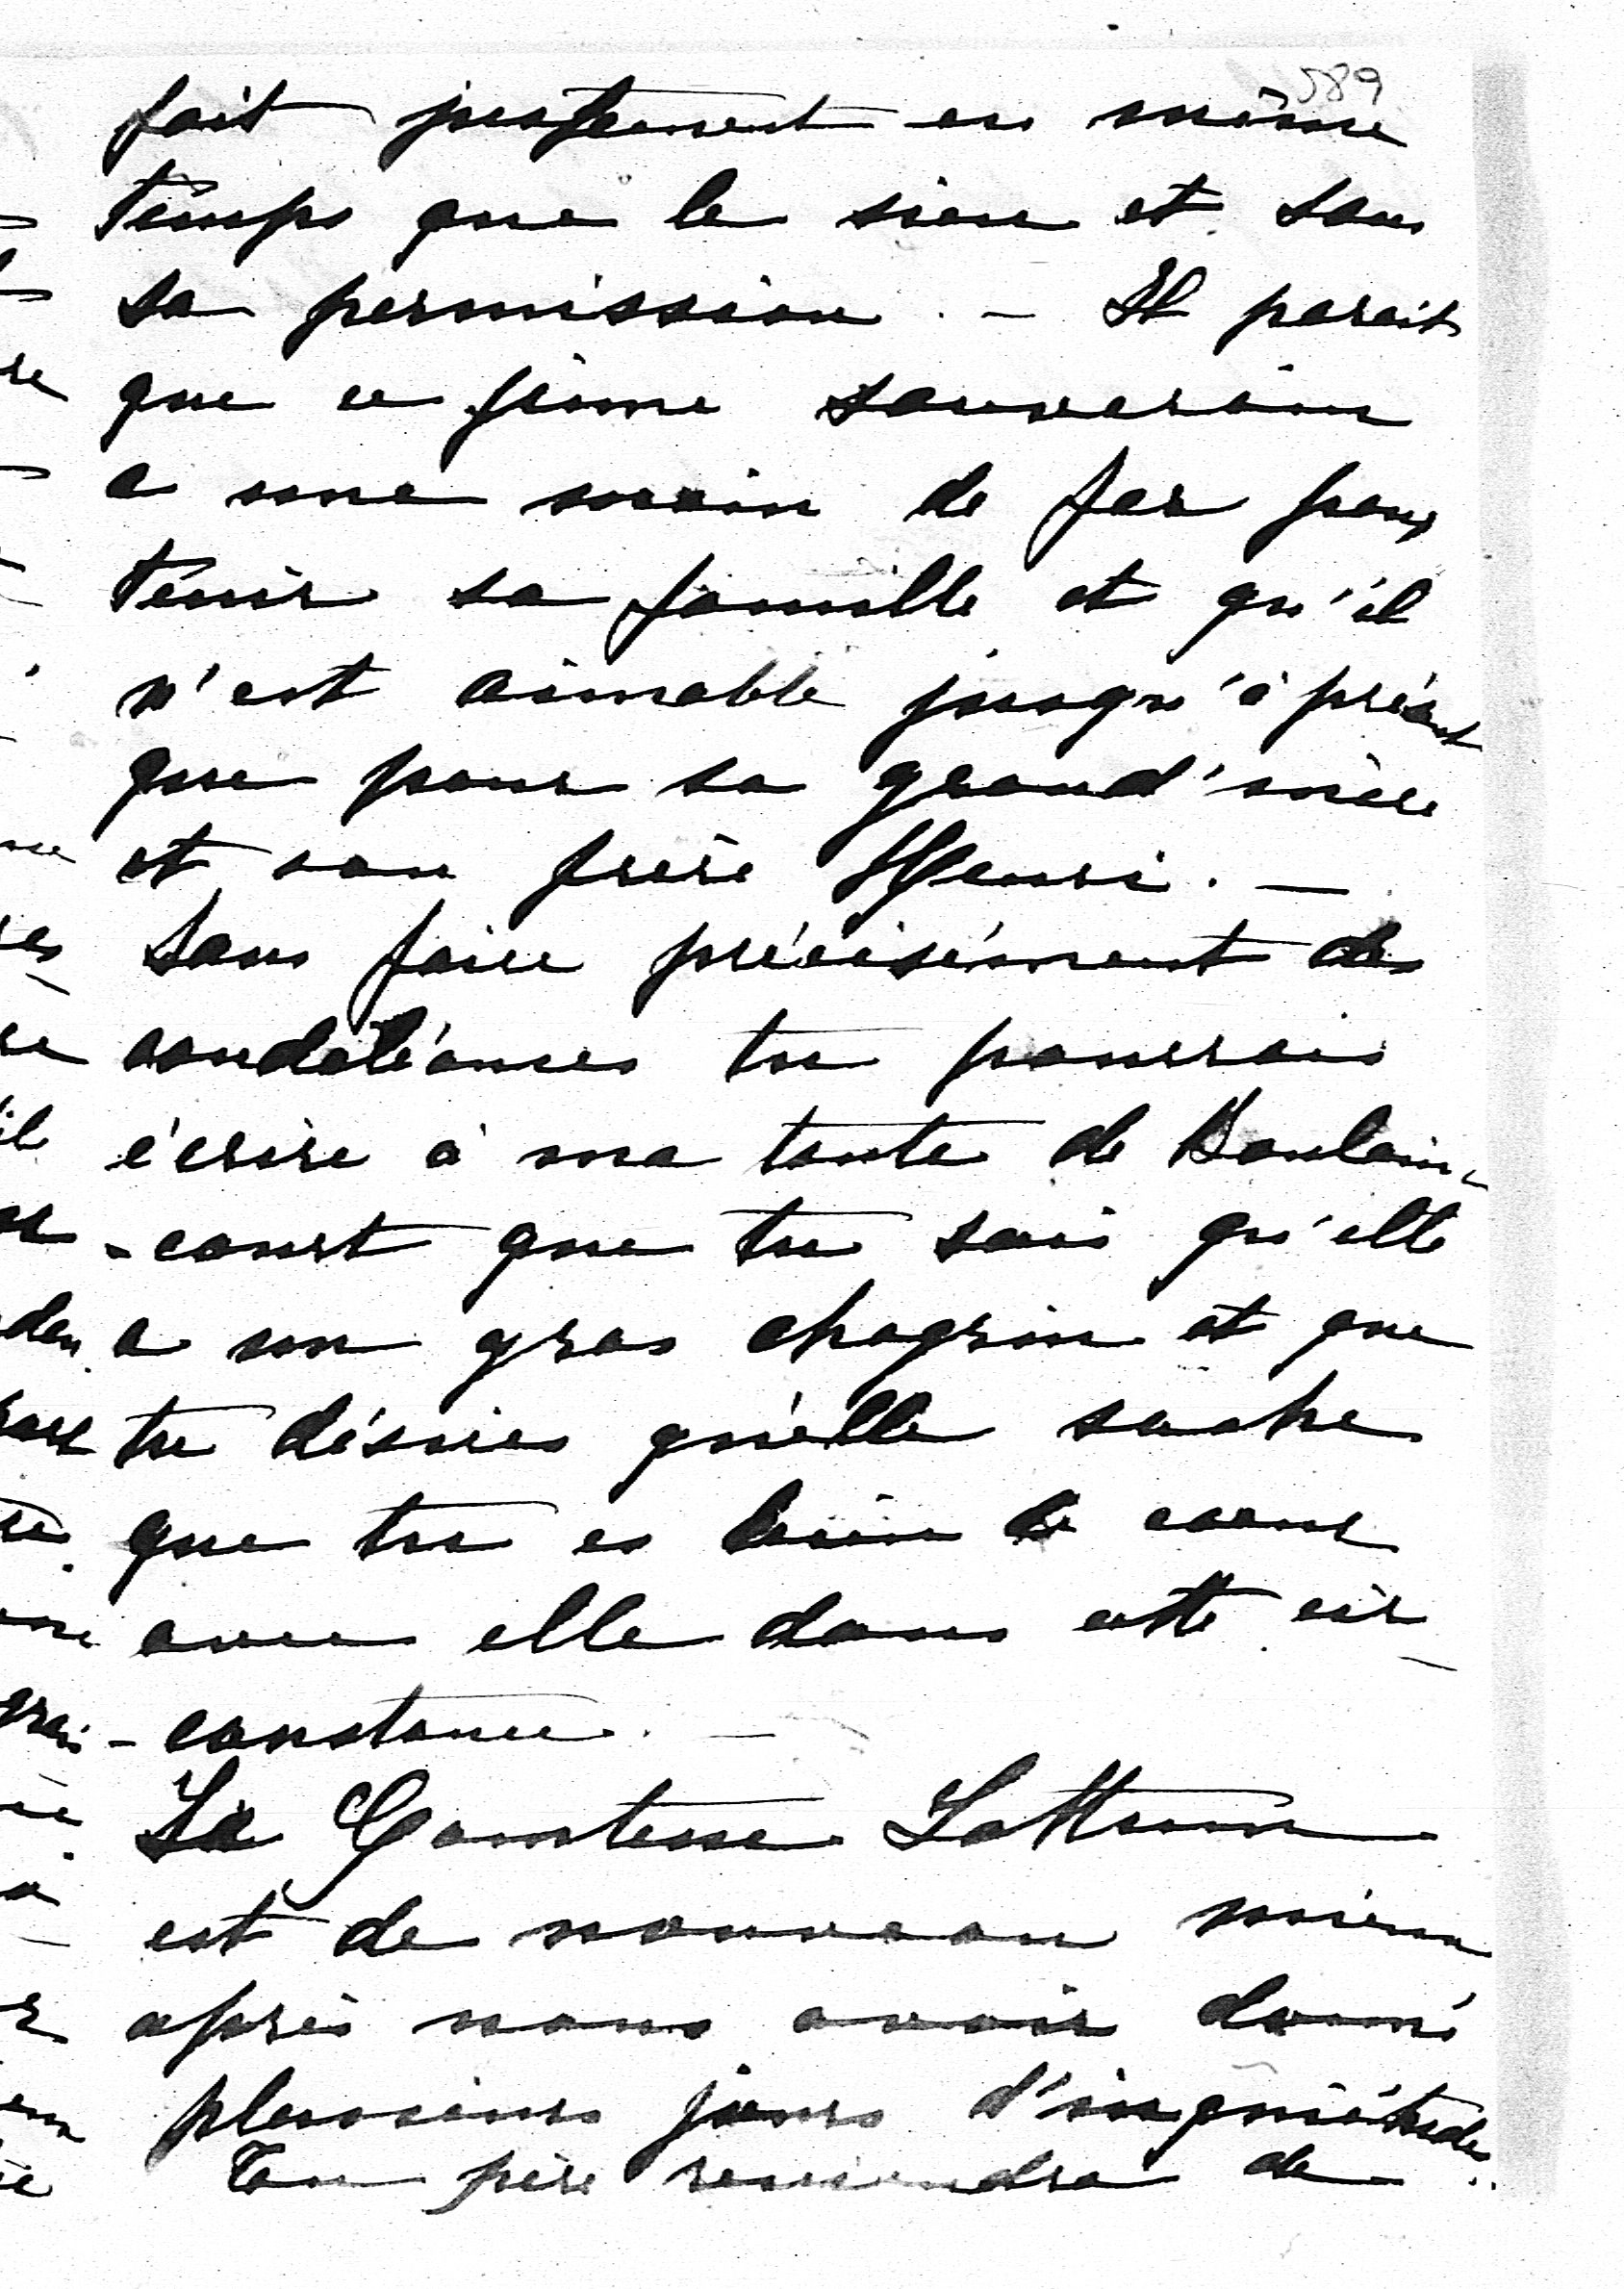 589
fait justement en même
temps que le sien et sans
sa permission. - Il parait
que ce jeune souverain
a une main de fer pour
tenir sa famille et qu'il
n'est aimable jusqu'à présent
que pour sa grand'mère
et son frère Henri. -
Sans faire précisément des
condoléances tu pourrais
écrire à ma tante de
-court que tu sais qu'elle
a un gros chagrin et que
tu désires qu'elle sache
que tu es bien de cœur
avec elle dans cette cir-
-constance. -
La Comtesse Lottum
est de nouveau mieux
après nous avoir donné
plusieurs jours d'inquiétude.
Ton père reviendra de